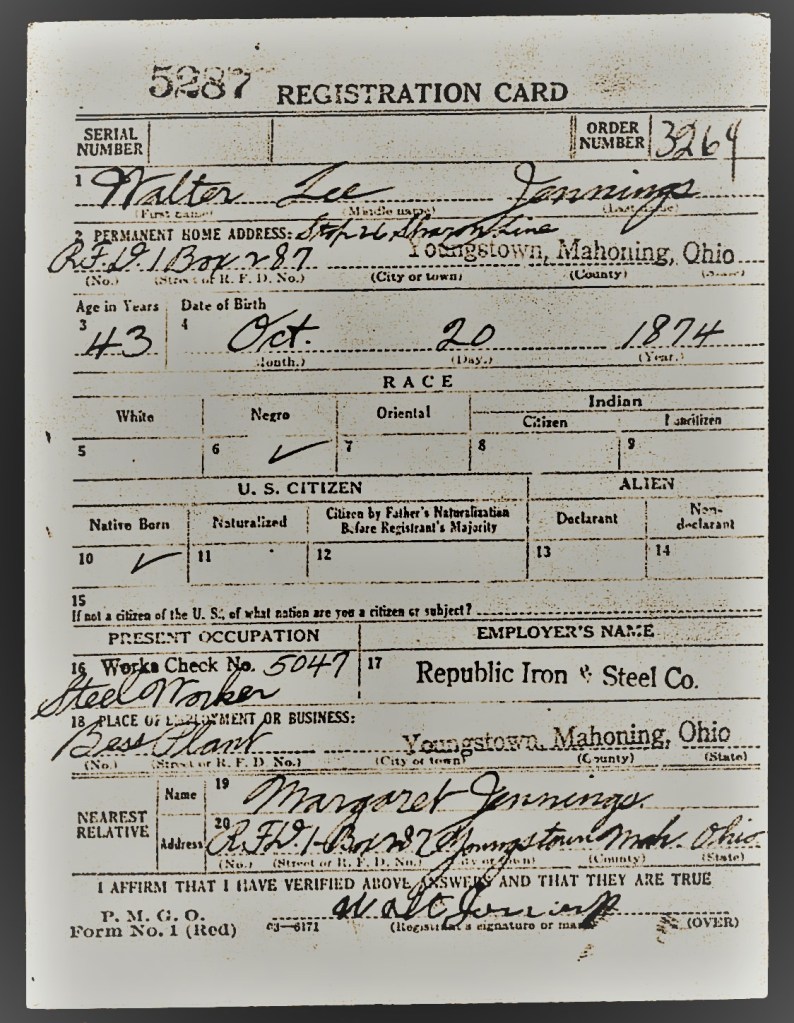 5287 REGISTRATION CARD
SERIAL NUMBER ORDER NUMBER 3264
1 Walter Lee Jennings
(First name) (Middle name) (Last name)
2 PERMANENT HOME ADDRESS: Stop 26 Sharon Line
R.F.D. 1 Box 287 Youngstown, Mahoning, Ohio
(No.) (Street or R. F. D. No.) (City or town) (County) (State)
Age in Years Date of Birth
3 43 4 Oct. 20 1874
(Month.) (Day.) (Year.)
RACE
White Negro Oriental Indian
Citizen Noncitizen
5 6 ✓ 7 8 9
U. S. CITIZEN ALIEN
Native Born Naturalized Citizen by Father's Naturalization Before Registrant's Majority Declarant Non-declarant
10 ✓ 11 12 13 14
15
If not a citizen of the U. S., of what nation are you a citizen or subject?
PRESENT OCCUPATION EMPLOYER'S NAME
16 Works Check No. 5047 17 Republic Iron & Steel Co.
Steel Worker
18 PLACE OF EMPLOYMENT OR BUSINESS:
Bess Plant Youngstown, Mahoning, Ohio
(No.) (Street or R. F. D. No.) (City or town) (County) (State)
NEAREST RELATIVE Name 19 Margaret Jennings
Address 20 R.F.D. 1-Box 287 Youngstown Mah. Ohio
(No.) (Street or R. F. D. No.) (City or town) (County) (State)
I AFFIRM THAT I HAVE VERIFIED ABOVE ANSWERS AND THAT THEY ARE TRUE
P. M. G. O.
Form No. 1 (Red) 03—6171 Walt Jennings
(Registrant's signature or mark) (OVER)